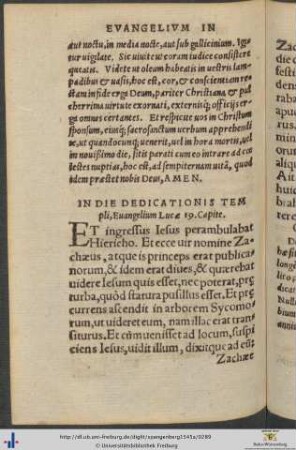 EVANGELIVM IN
aut noctu, in media nocte, aut sub gallicinium. Igi
tur vigilate. Sic vivite ut coram iudice consistere
queatis. Videte ut oleum habeatis in vestris lam-
padibus & vasis, hoc est, cor, & conscientiam re-
ctam in fide erga Deum, pariter Christiana & pul
cherrima virtute exornati, externisq; officijs er
ga omnes certantes. Et respicite vos in Christum
sponsum, eiusq; sacrosanctum verbum apprehendi
te, ut quandocunq; venerit, vel in hora mortis, vel
in novissimo die, sitis parati cum eo intrare ad cœ
lestes nuptias, hoc est, ad sempiternam vitã, quod
idem præstet nobis Deus, AMEN.
IN DIE DEDICATIONIS TEM
pli, Euangelium Lucæ 19. Capite.
ET ingressus Iesus perambulabat
Hiericho. Et ecce vir nomine Za-
chæus, atque is princeps erat publica
norum, & idem erat diues, & quærebat
videre Iesum quis esset, nec poterat, præ
turba, quòd statura pusillus esset. Et præ
currens ascendit in arborem Sycomo-
rum, ut videret eum, nam illac erat tran
siturus. Et cùm venisset ad locum, suspi
ciens Iesus, vidit illum, dixitque ad eũ:
Zachæe
http://dl.ub.uni-freiburg.de/diglit/spangenberg1545a/0289
© Universitätsbibliothek Freiburg
Baden-Württemberg